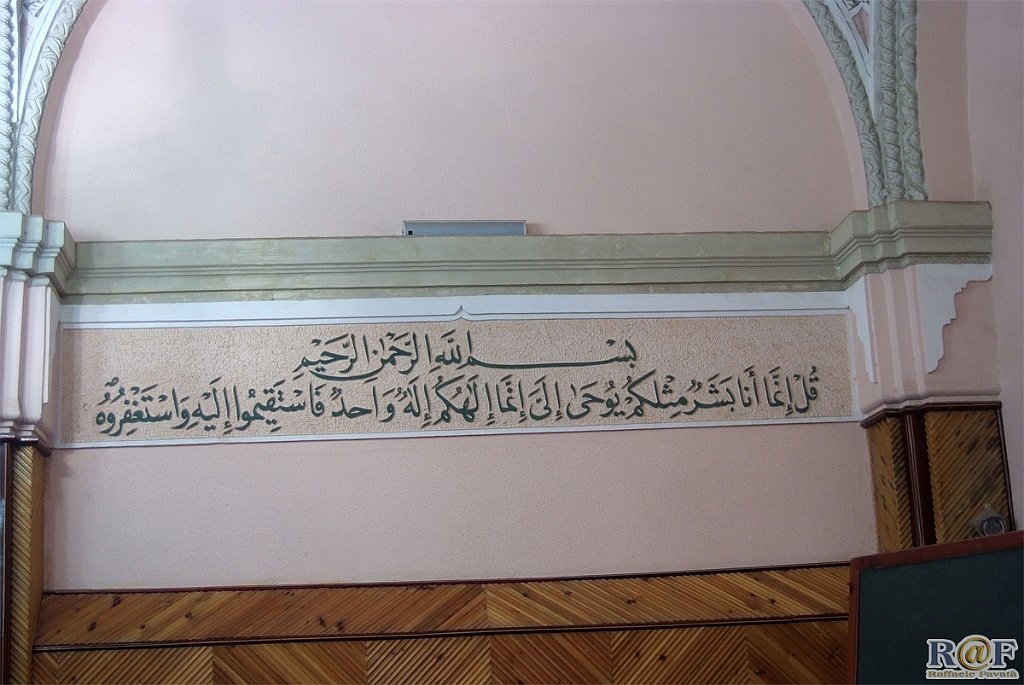 بِسْمِ اللَّهِ الرَّحْمٰنِ الرَّحِيْمِ
قُلْ إِنَّمَا أَنَا بَشَرٌ مِثْلُكُمْ يُوحَىٰ إِلَيَّ إِنَّمَا إِلَٰهُكُمْ إِلَٰهٌ وَاحِدٌ فَاسْتَقِيمُوا إِلَيْهِ وَاسْتَغْفِرُوهُ
R@F
Raffaele Pavatà